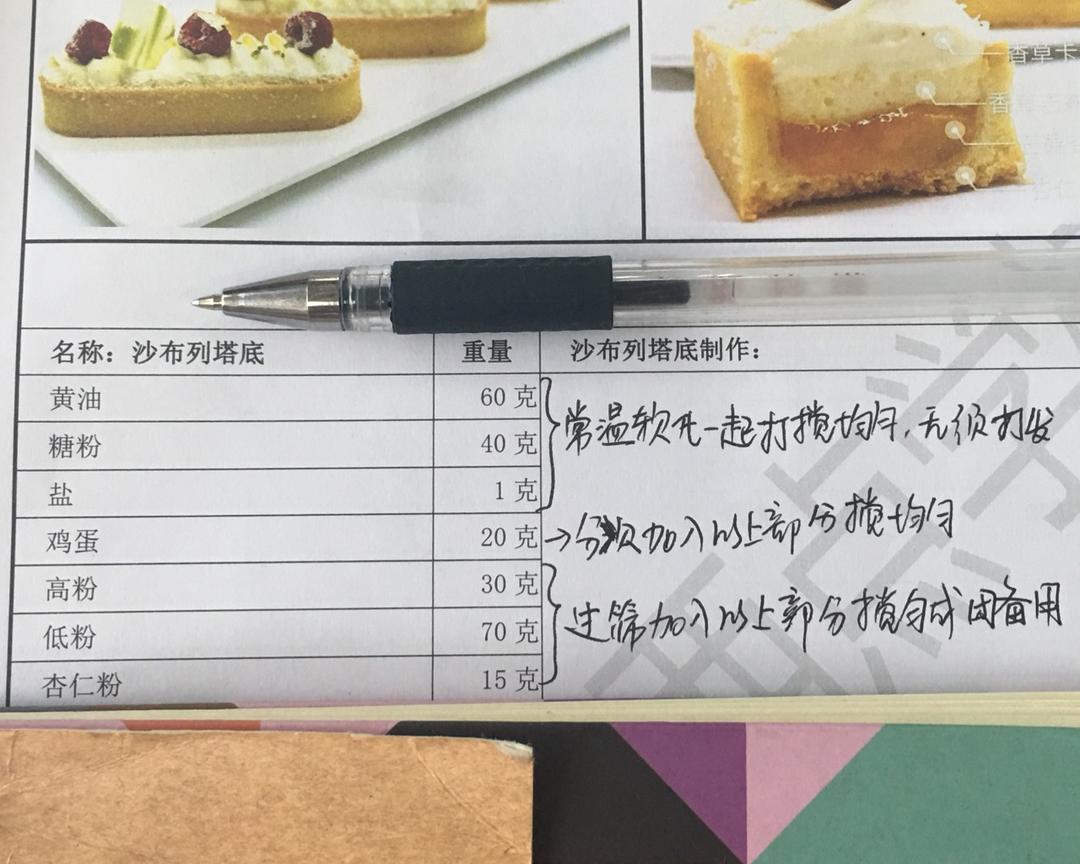 香草卡
香
名称：沙布列塔底 重量 沙布列塔底制作：
黄油 60 克
糖粉 40 克
盐 1 克
常温软化一起打搅均匀，无须打发
鸡蛋 20 克 →分次加入以上部分搅均匀
高粉 30 克
低粉 70 克
杏仁粉 15 克
过筛加入以上部分搅匀成团备用